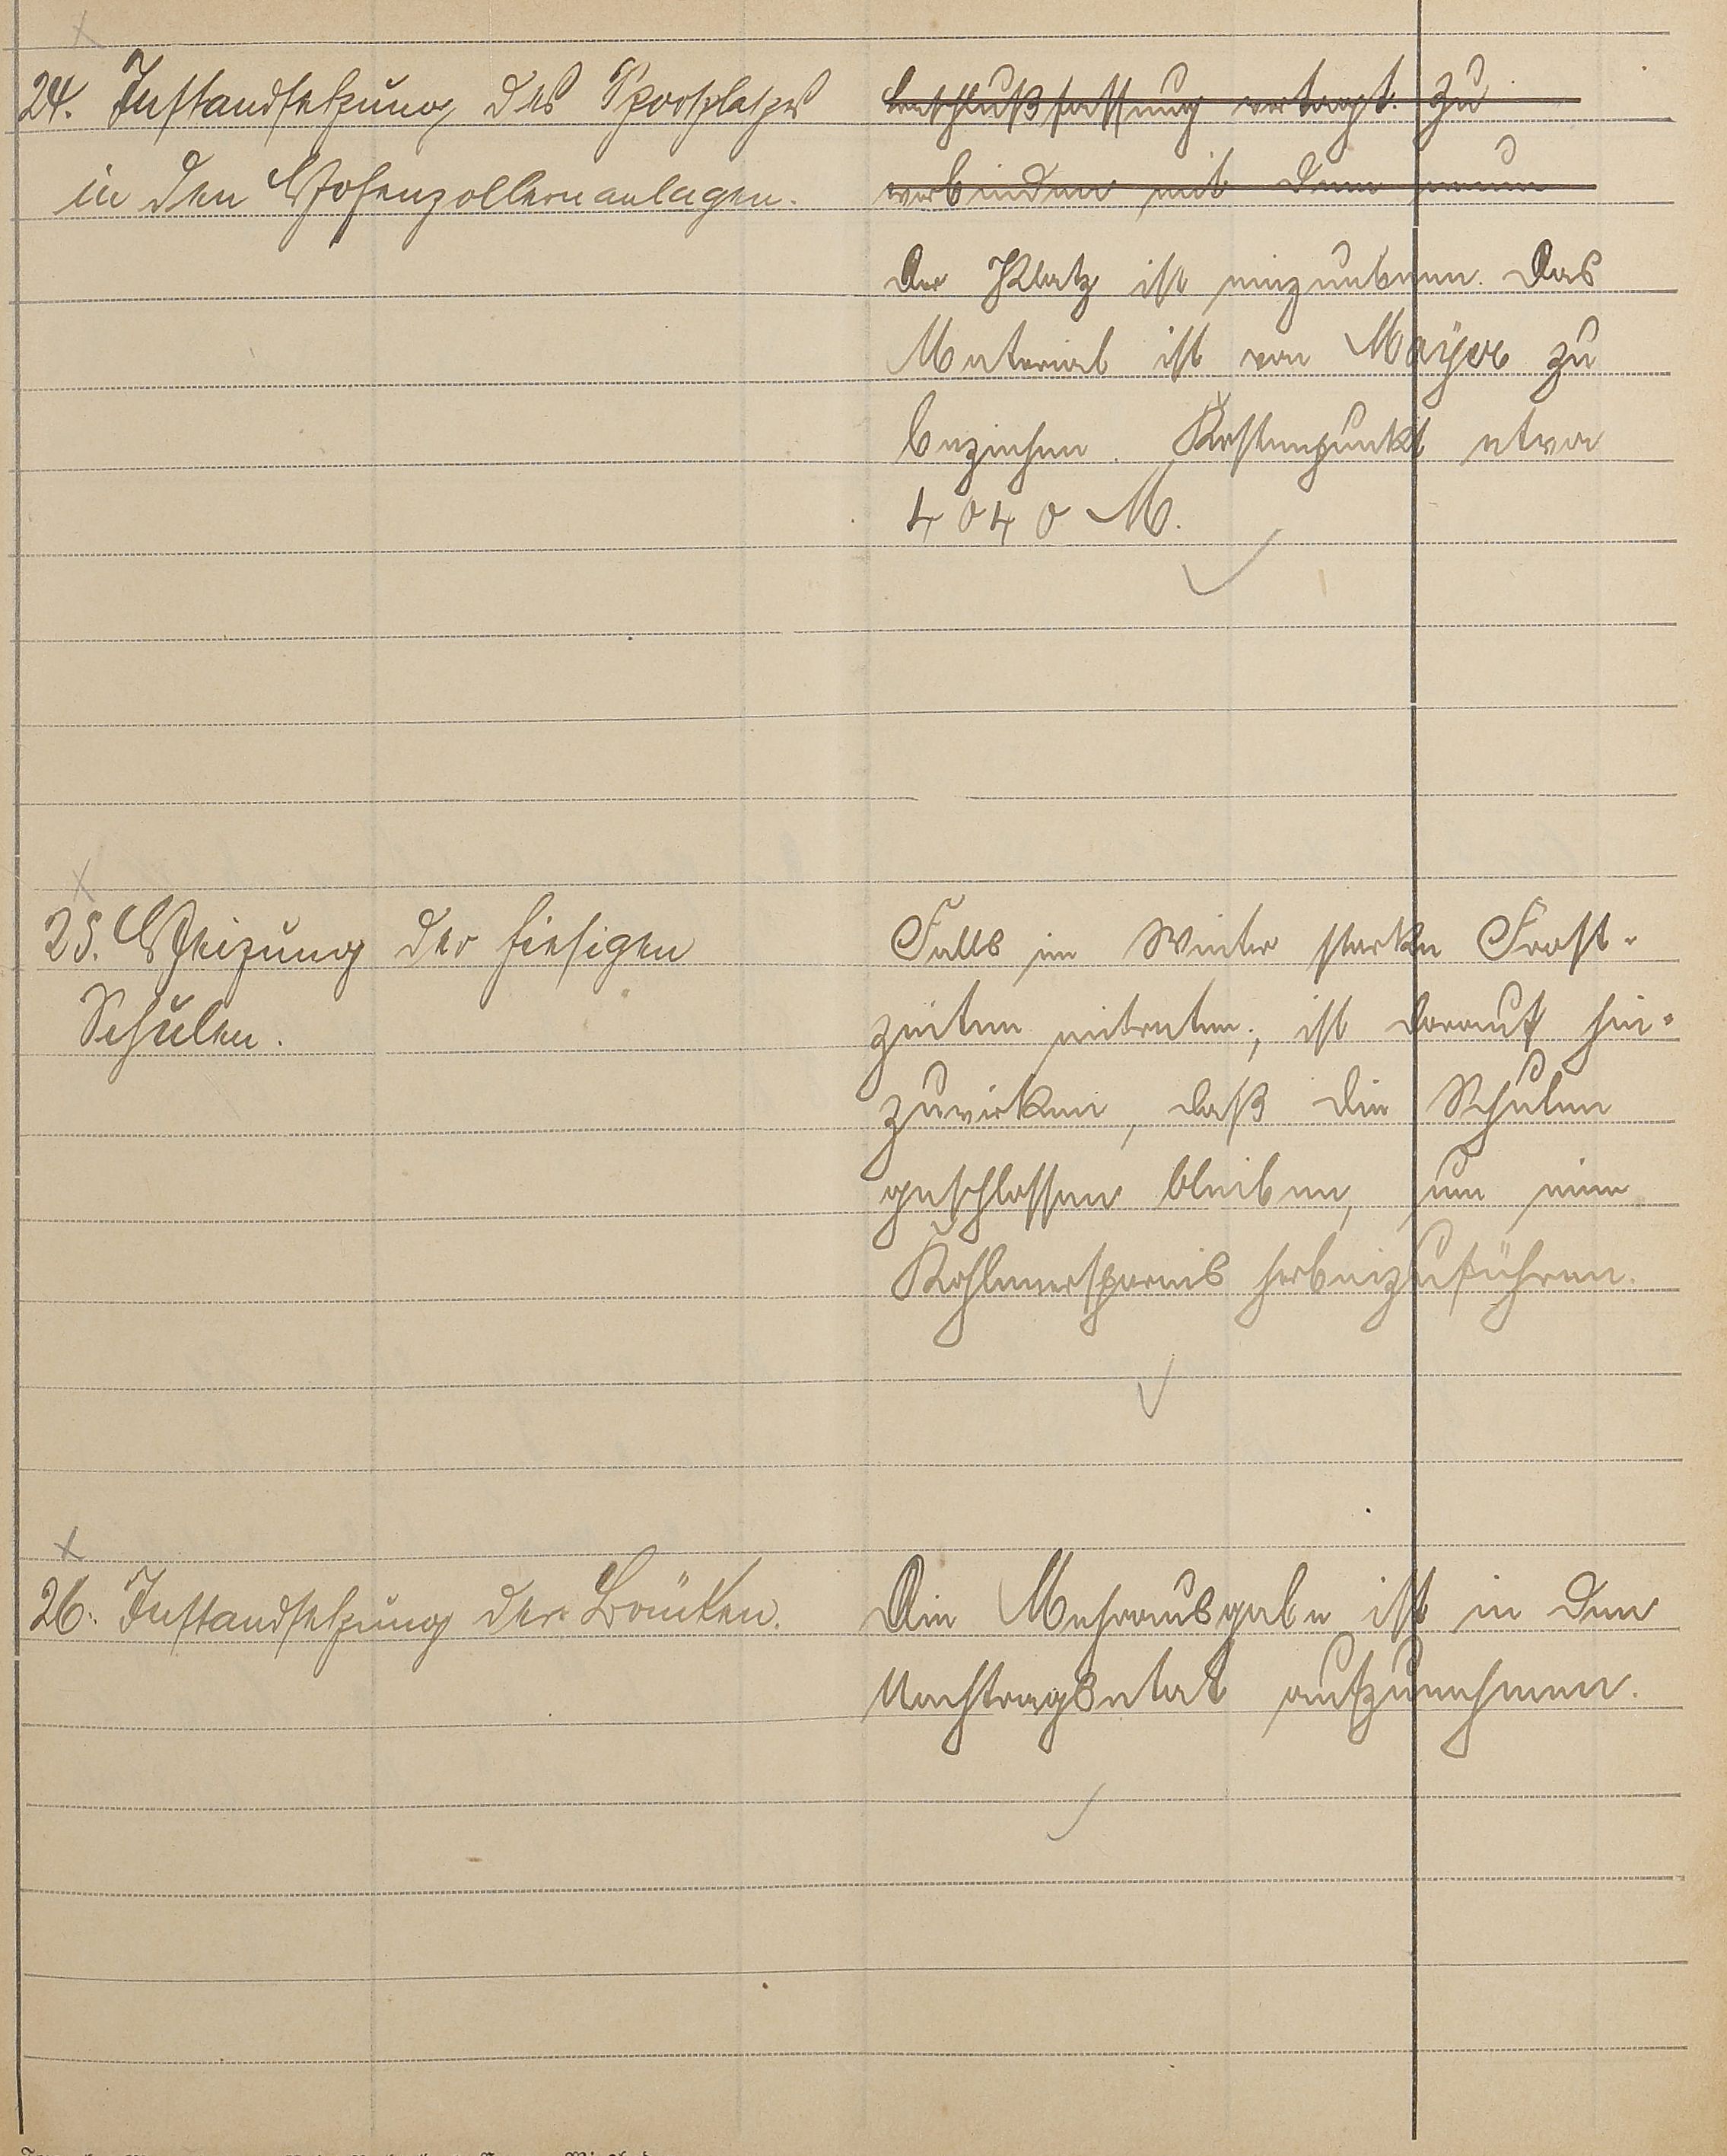 24. Instandsetzung des Sportplatzes
in den Hohenzollernanlagen.
Beschlußfassung vertagt. Zu
verbinden mit dem neuen
Der Platz ist einzuebnen. Das
Material ist von Mayer zu
beziehen. Kostenpunkt etwa
4040 M.
25. Heizung der hiesigen
Schulen.
Falls im Winter starke Frost-
zeiten eintreten, ist darauf hin-
zuwirken, daß die Schulen
geschlossen bleiben, um eine
Kohlenersparnis herbeizuführen.
26. Instandsetzung der Brücken.
Die Mehrausgabe ist in den
Nachtragsetat aufzunehmen.